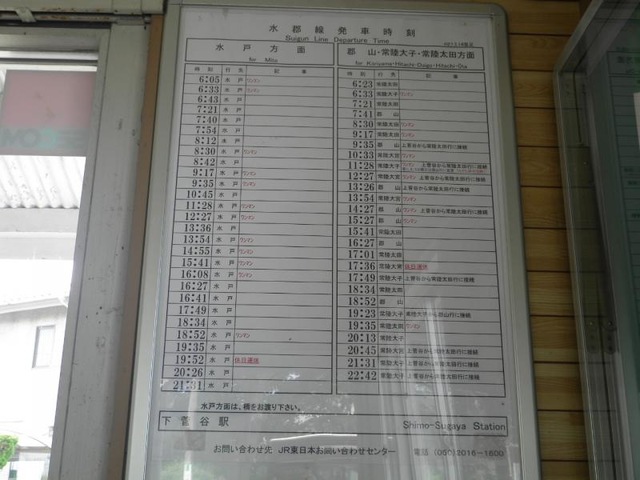 水郡線発車時刻
Suigun Line Departure Time
水戸方面
for Mito
時刻 行先 記事
6:05 水戸 ワンマン
6:33 水戸 ワンマン
6:43 水戸
7:21 水戸
7:40 水戸
7:54 水戸
8:12 水戸
8:30 水戸 ワンマン
8:42 水戸
9:17 水戸 ワンマン
9:35 水戸 ワンマン
10:45 水戸
11:28 水戸 ワンマン
12:27 水戸 ワンマン
13:36 水戸
13:54 水戸 ワンマン
14:55 水戸 ワンマン
15:41 水戸 ワンマン
16:08 水戸 ワンマン
16:27 水戸
16:41 水戸
17:49 水戸
18:34 水戸
18:52 水戸 ワンマン
19:35 水戸
19:52 水戸 休日運休
20:26 水戸
21:31 水戸
郡山・常陸大子・常陸太田方面
for Koriyama・Hitachi-Daigo・Hitachi-Ota
時刻 行先 記事
6:23 常陸太田
6:33 常陸大子 ワンマン
7:21 常陸太田
7:41 郡山
8:30 常陸太田 ワンマン
9:17 常陸太田 ワンマン
9:35 郡山 上菅谷から常陸太田行に接続
10:33 常陸大宮 ワンマン
11:28 常陸大子 ワンマン 上菅谷から常陸太田行に接続
12:27 常陸大宮 ワンマン 上菅谷から常陸太田行に接続
13:26 郡山 上菅谷から常陸太田行に接続
13:54 常陸大宮 ワンマン
14:27 郡山 ワンマン 上菅谷から常陸太田行に接続
15:27 郡山 ワンマン
15:41 常陸太田
16:27 郡山
17:01 常陸太田
17:36 常陸大宮 休日運休
17:49 常陸大子 上菅谷から常陸太田行に接続
18:34 常陸太田
18:52 郡山
19:23 常陸大子
19:35 常陸太田 ワンマン
20:13 常陸大子
20:45 常陸大宮 上菅谷から常陸太田行に接続
21:31 常陸大子 上菅谷から常陸太田行に接続
22:42 常陸大子 上菅谷から常陸太田行に接続
水戸方面は、橋をお渡り下さい。
下菅谷駅 Shimo-Sugaya Station
お問い合わせ先 JR東日本お問い合わせセンター 電話 (050)2016-1600